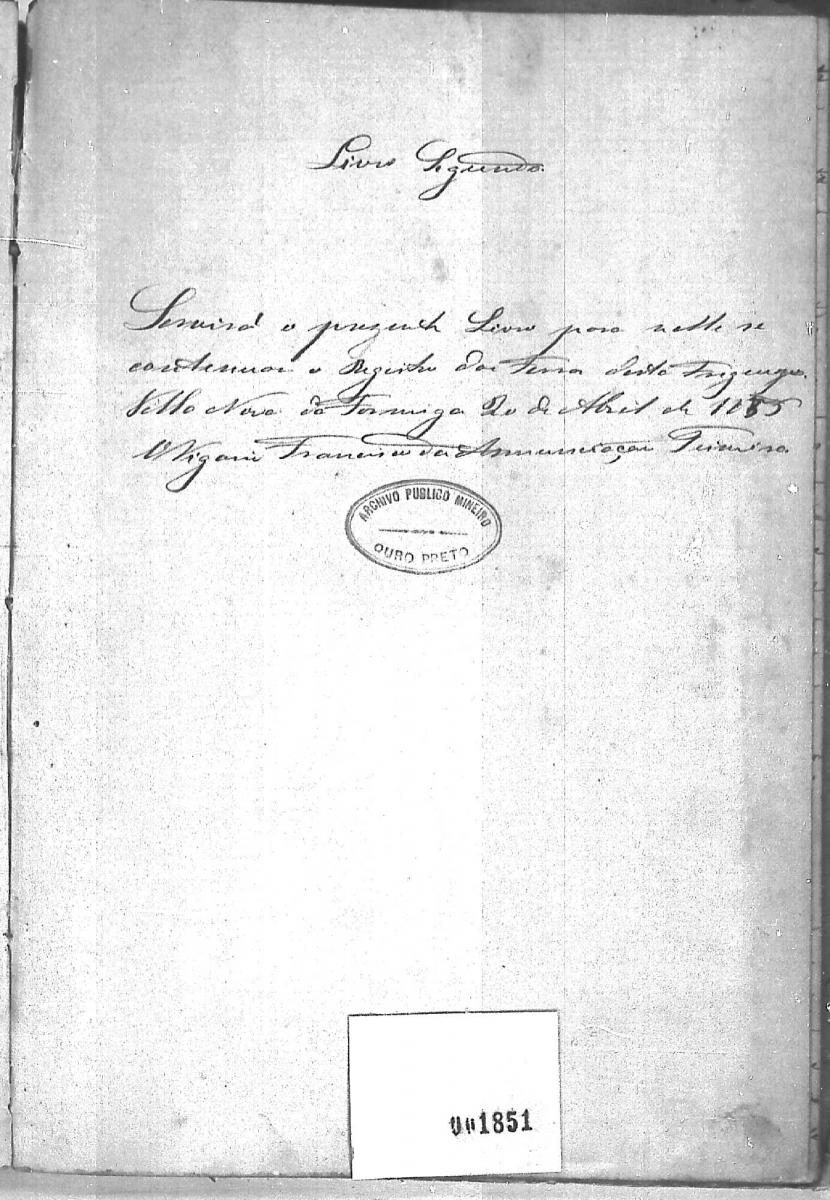 Livro Segundo
Servirá o prezente Livro para nelle se
continuar o Registro das Terras desta Freguezia.
Villa Nova da Formiga 20 de Abril de 1855
O Vigario Francisco da Annunciação Teixeira
ARCHIVO PUBLICO MINEIRO
OURO PRETO
001851